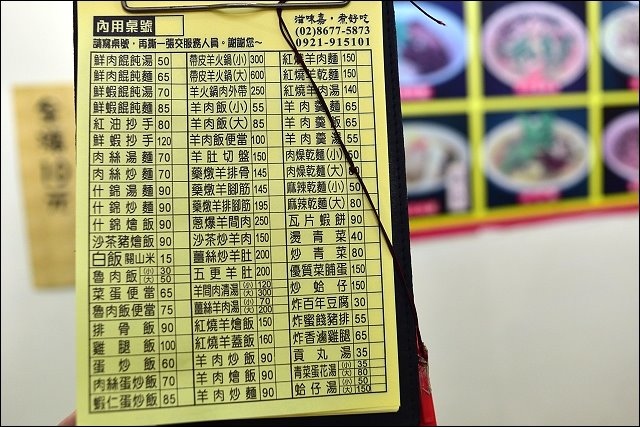 內用桌號
滋味嘉‧煮好吃
(02)8677-5873
0921-915101
請寫桌號,再撕一張交服務人員。謝謝您~
鮮肉餛飩湯 50 帶皮羊火鍋(小) 300 紅燒羊肉麵 150
鮮肉餛飩麵 65 帶皮羊火鍋(大) 600 紅燒羊乾麵 150
鮮蝦餛飩湯 70 羊火鍋肉外帶 250 紅燒羊肉湯 140
鮮蝦餛飩麵 85 羊肉飯(小) 55 羊肉羹麵 65
紅油抄手 80 羊肉飯(大) 85 羊肉羹飯 65
鮮蝦抄手 120 羊肉飯便當 100 羊肉羹湯 55
肉絲湯麵 70 羊肚切盤 150 肉燥乾麵(小) 50
肉絲炒麵 70 藥燉羊排骨 145 肉燥乾麵(大)
什錦湯麵 90 藥燉羊腳筋 145 麻辣乾麵(小) 50
什錦炒麵 90 藥燉羊排腳筋 195 麻辣乾麵(大)
什錦燴飯 90 蔥爆羊腩肉 250 瓦片蝦餅 90
沙茶豬燴飯 90 沙茶炒羊肉 150 燙青菜 40
白飯 關山米 15 薑絲炒羊肚 200 炒青菜 80
魯肉飯 (小) 30 (大) 50 五更羊肚 200 優質菜脯蛋 150
菜蛋便當 65 羊腩肉清湯 (小) 120 (大) 300 炒蛤仔 150
魯肉飯便當 75 薑絲羊肉湯 (小) 70 (大) 200 炸百年豆腐 30
排骨飯 90 紅燒羊燴飯 150 炸蜜餞豬排 55
雞腿飯 100 紅燒羊蓋飯 160 炸香滷雞腿 65
蛋炒飯 60 羊肉炒飯 90 貢丸湯 35
肉絲蛋炒飯 70 羊肉燴飯 90 青菜蛋花湯 (小) 35 (大) 80
蝦仁蛋炒飯 85 羊肉炒麵 90 蛤仔湯 (小) 50 (大) 150